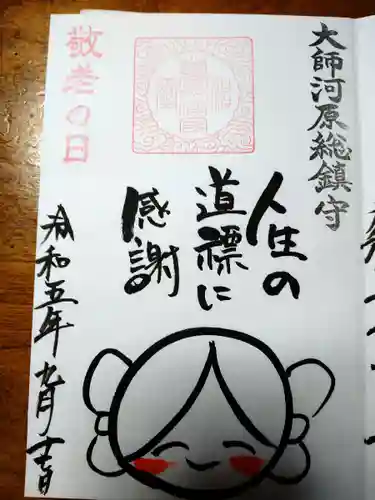 大師河原総鎮守
人生の
道標に
感謝
敬老の日
令和五年九月十六日